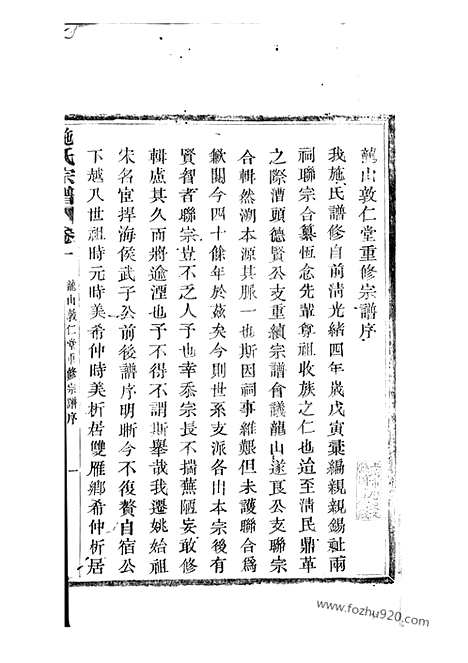 龍山敦仁堂重修宗譜序
我施氏譜修自前淸光緒四年歲戊寅葉編親親錫祉兩
祠聯宗合纂恆念先輩尊祖收族之仁也迨至淸民鼎革
之際漕頭德賢公支重續宗譜會議龍山遂良公支聯宗
合輯然溯本源其脈一也斯因祠事維艱但未護聯合爲
歉閱今四十餘年於茲矣今則世系支派各出本宗後有
賢智者聯宗豈不之人予也幸忝宗長不揣蕪陋妄敢修
輯虑其久而將逾湮也予不得不謂斯舉哉我遷姚始祖
宋名宦捍海侯武子公前後譜序明晰今不復贅自宿公
下越八世祖時元時美希仲時美析居雙雁鄉希仲析居
施氏宗譜 卷一 龍山敦仁堂重修宗譜序 一
www.fozhu920.com